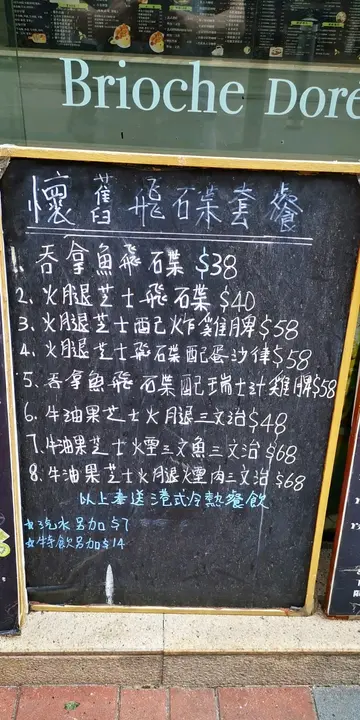 Brioche Doré
懷舊飛碟套餐
1. 吞拿魚飛碟 $38
2. 火腿芝士飛碟 $40
3. 火腿芝士配炸雞脾 $58
4. 火腿芝士飛碟配蛋沙律 $58
5. 吞拿魚飛碟配瑞士汁雞脾 $58
6. 牛油果芝士火腿三文治 $48
7. 牛油果芝士火煙三文魚三文治 $68
8. 牛油果芝士火腿煙肉三文治 $68
以上奉送港式冷熱餐飲
☆汽水另加$7
☆特飲另加$14